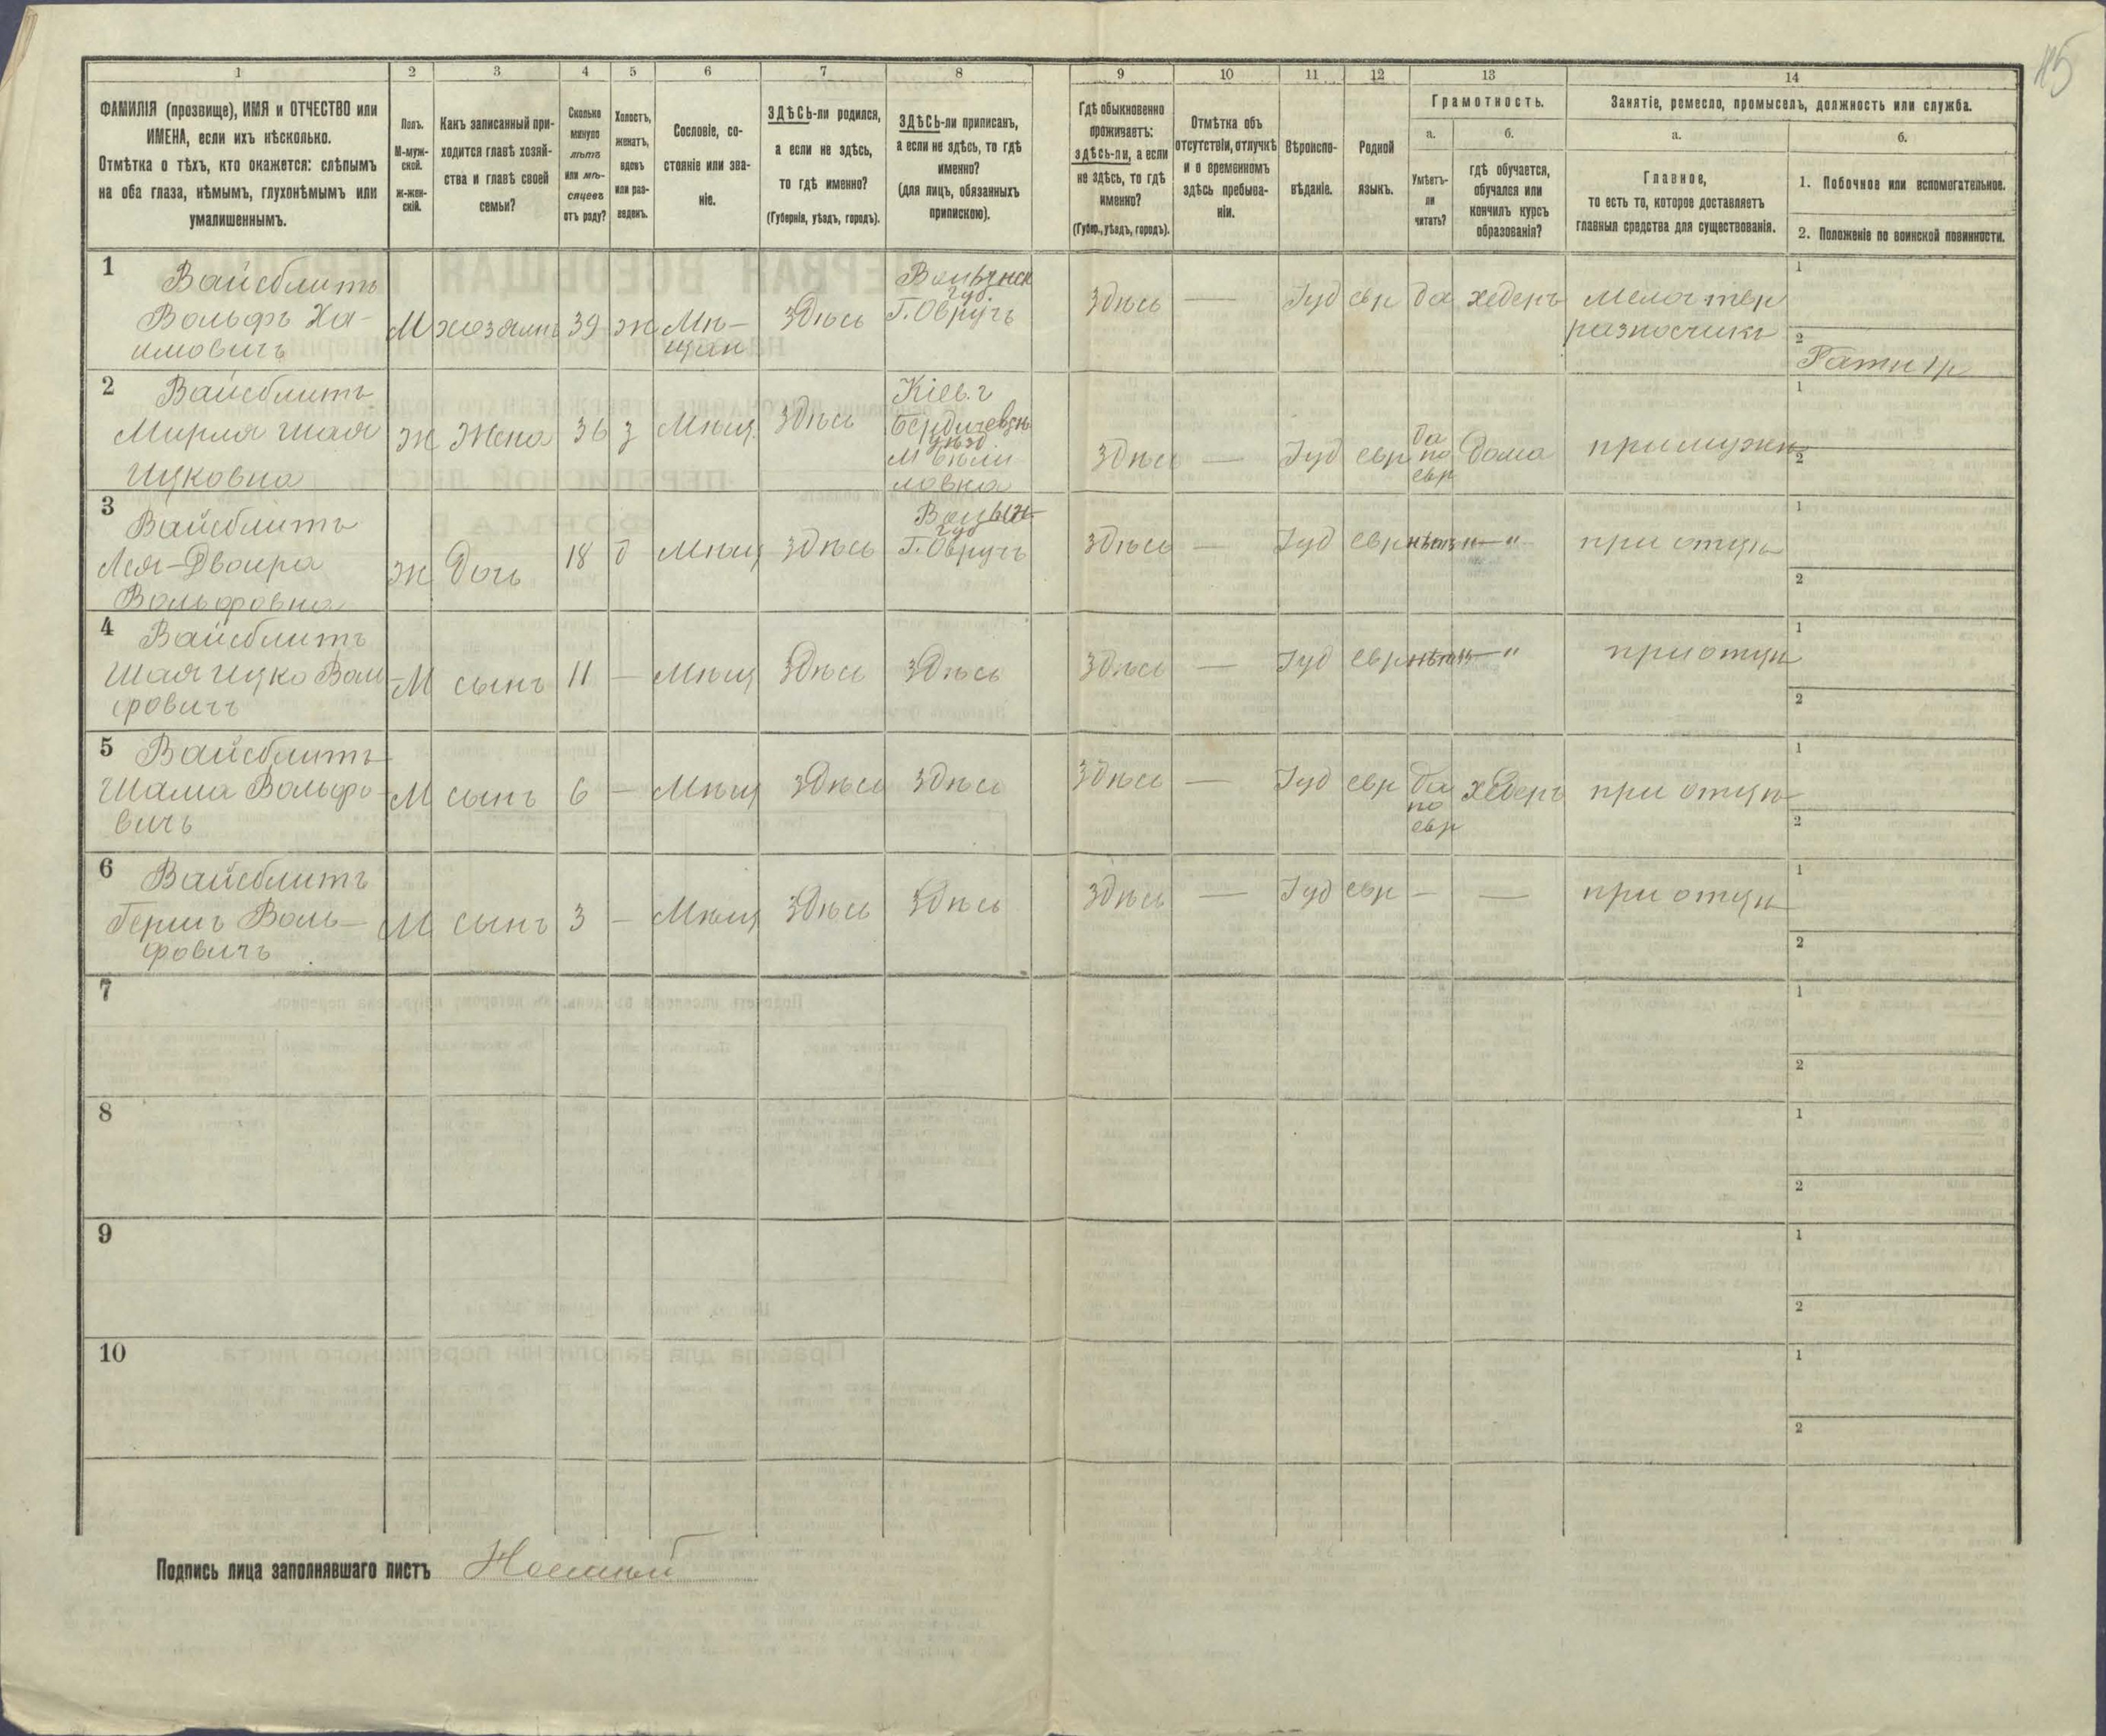 115
1 2 3 4 5 6 7 8 9 10 11 12 13 14
ФАМИЛІЯ (прозвище), ИМЯ и ОТЧЕСТВО или
ИМЕНА, если ихъ нѣсколько.
Отмѣтка о тѣхъ, кто окажется: слѣпымъ
на оба глаза, нѣмымъ, глухонѣмымъ или
умалишеннымъ.
Полъ.
М-муж-
ской.
ж-жен-
скій.
Какъ записанный при-
ходится главѣ хозяй-
ства и главѣ своей
семьи?
Сколько
минуло
лѣтъ
или мѣ-
сяцевъ
отъ роду?
Холостъ,
женатъ,
вдовъ
или раз-
веденъ.
Сословіе, со-
стояніе или зва-
ніе.
ЗДѢСЬ-ли родился,
а если не здѣсь,
то гдѣ именно?
(Губернія, уѣздъ, городъ).
ЗДѢСЬ-ли приписанъ,
а если не здѣсь, то гдѣ
именно?
(для лицъ, обязанныхъ
припискою).
Гдѣ обыкновенно
проживаетъ:
здѣсь-ли, а если
не здѣсь, то гдѣ
именно?
(Губер., уѣздъ, городъ).
Отмѣтка объ
отсутствіи, отлучкѣ
и о временномъ
здѣсь пребыва-
ніи.
Вѣроиспо-
вѣданіе.
Родной
языкъ.
Грамотность.
а.
Умѣетъ-
ли
читать?
б.
гдѣ обучается,
обучался или
кончилъ курсъ
образованія?
Занятіе, ремесло, промыселъ, должность или служба.
а.
Главное,
то есть то, которое доставляетъ
главныя средства для существованія.
б.
1. Побочное или вспомогательное.
2. Положеніе по воинской повинности.
1 Вайсблитъ
Вольфъ Ха-
имовичъ
М хозяинъ 39 ж Мѣ-
щан
Здѣсь
Волынск
губ.
Г. Овручъ
Здѣсь — Іуд евр да хедеръ
мелоч тор
разносчикъ
1
2
2 Вайсблитъ
Мирля Шая
Ицковна
Ж Жена 36 з Мѣщ. Здѣсь
Кіев. г
Бердичевск
уѣзд.
М Бѣли
ловка
Здѣсь — Іуд евр
да
по
евр
дома при мужѣ
1
2
3 Вайсблитъ
Лея-Двойра
Вольфовна
Ж дочь 18 д Мѣщ Здѣсь
Волын-
губ
Г. Овручъ
Здѣсь — Іуд евр нѣтъ "—" при отцѣ
1
2
4 Вайсблитъ
Шая Ицко Воль-
фовичъ
М сынъ 11 — Мѣщ Здѣсь Здѣсь Здѣсь — Іуд евр нѣтъ "—" при отцѣ
1
2
5 Вайсблитъ
Шама Вольфо-
вичъ
М сынъ 6 — Мѣщ Здѣсь Здѣсь Здѣсь — Іуд евр
да
по
евр
хедеръ при отцѣ
1
2
6 Вайсблитъ
Гершъ Воль-
фовичъ
М сынъ 3 — Мѣщ Здѣсь Здѣсь Здѣсь — Іуд евр — — при отцѣ
1
2
7
1
2
8
1
2
9
1
2
10
1
2
Подпись лица заполнявшаго листъ